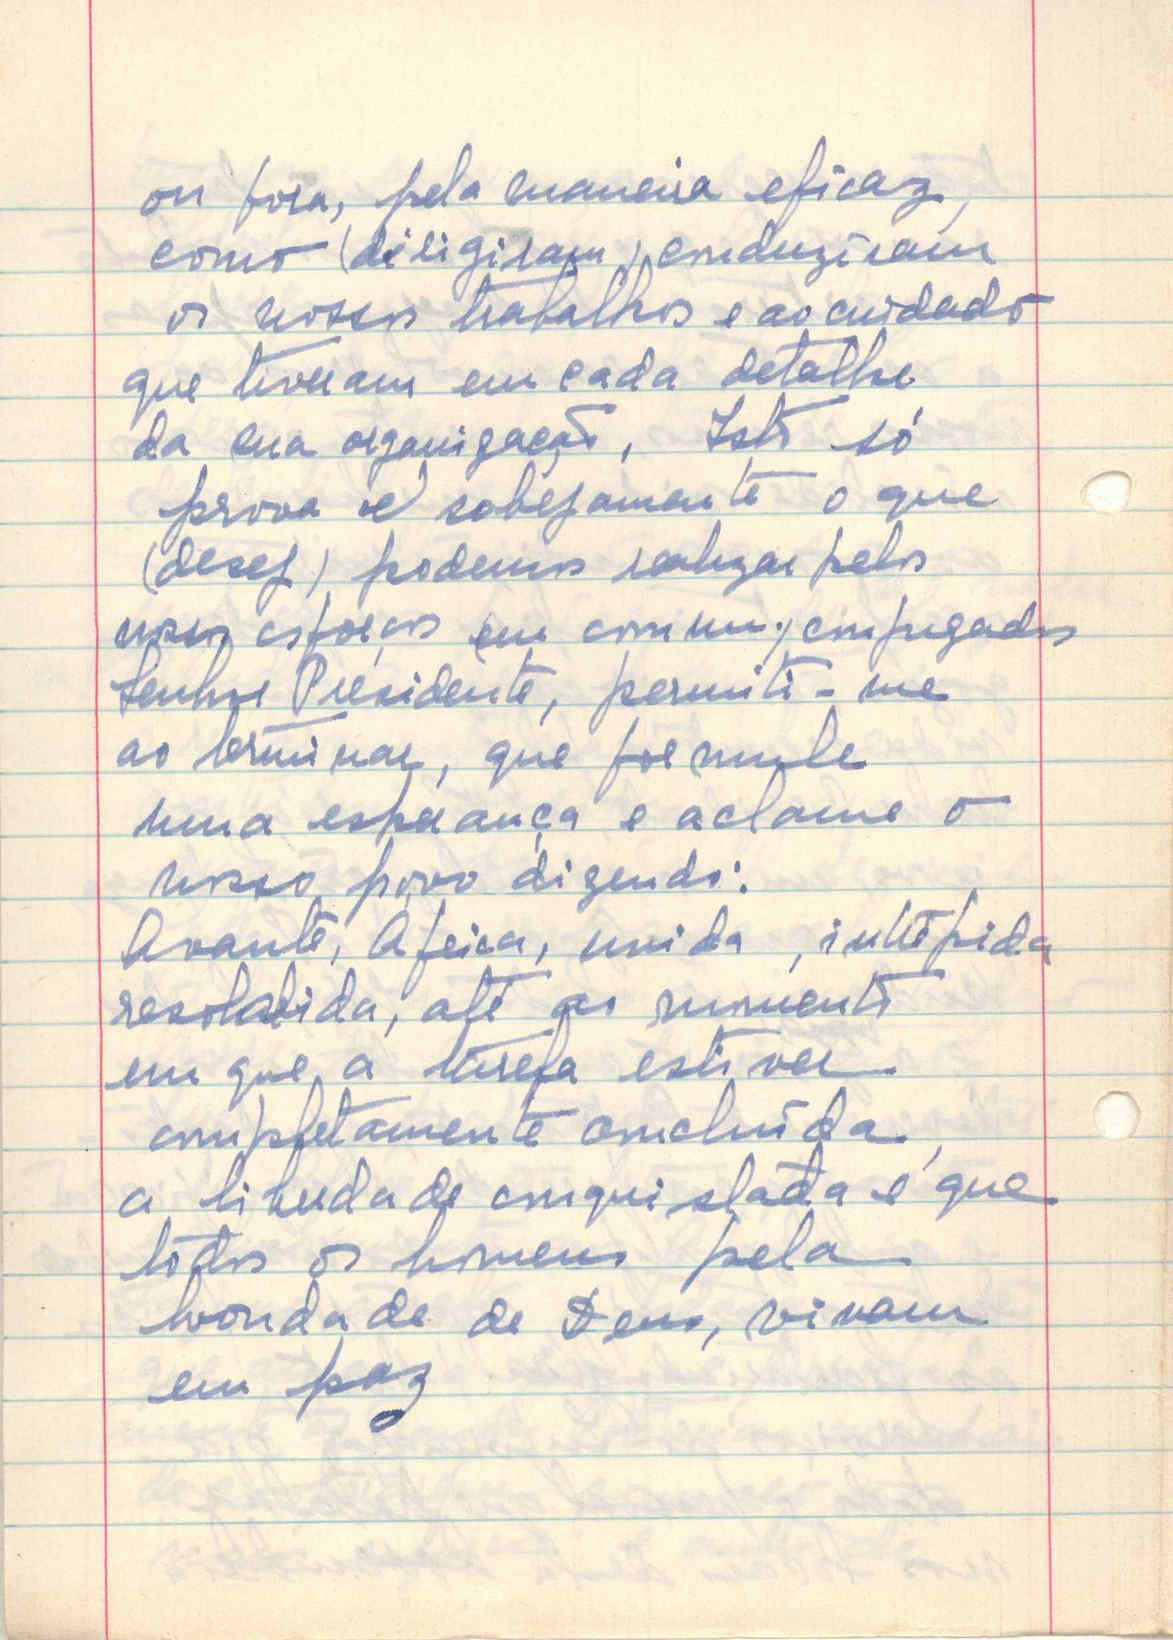 ou fora, pela maneira eficaz,
como (diligiram) conduziram
os nossos trabalhos e ao cuidado
que tiveram em cada detalhe
da sua organização. Isto só
prova e sobejamente o que
(desej) podemos realizar pelos
nossos esforços (em comum) conjugados
Senhor Presidente, permiti-me
ao terminar, que formule
uma esperança e aclame o
nosso povo dizendo:
Avante, Africa, unida, intrépida
até ao momento
em que a tarefa estiver
completamente concluída,
a liberdade conquistada e que
todos os homens pela
bondade de Deus, vivam
em paz